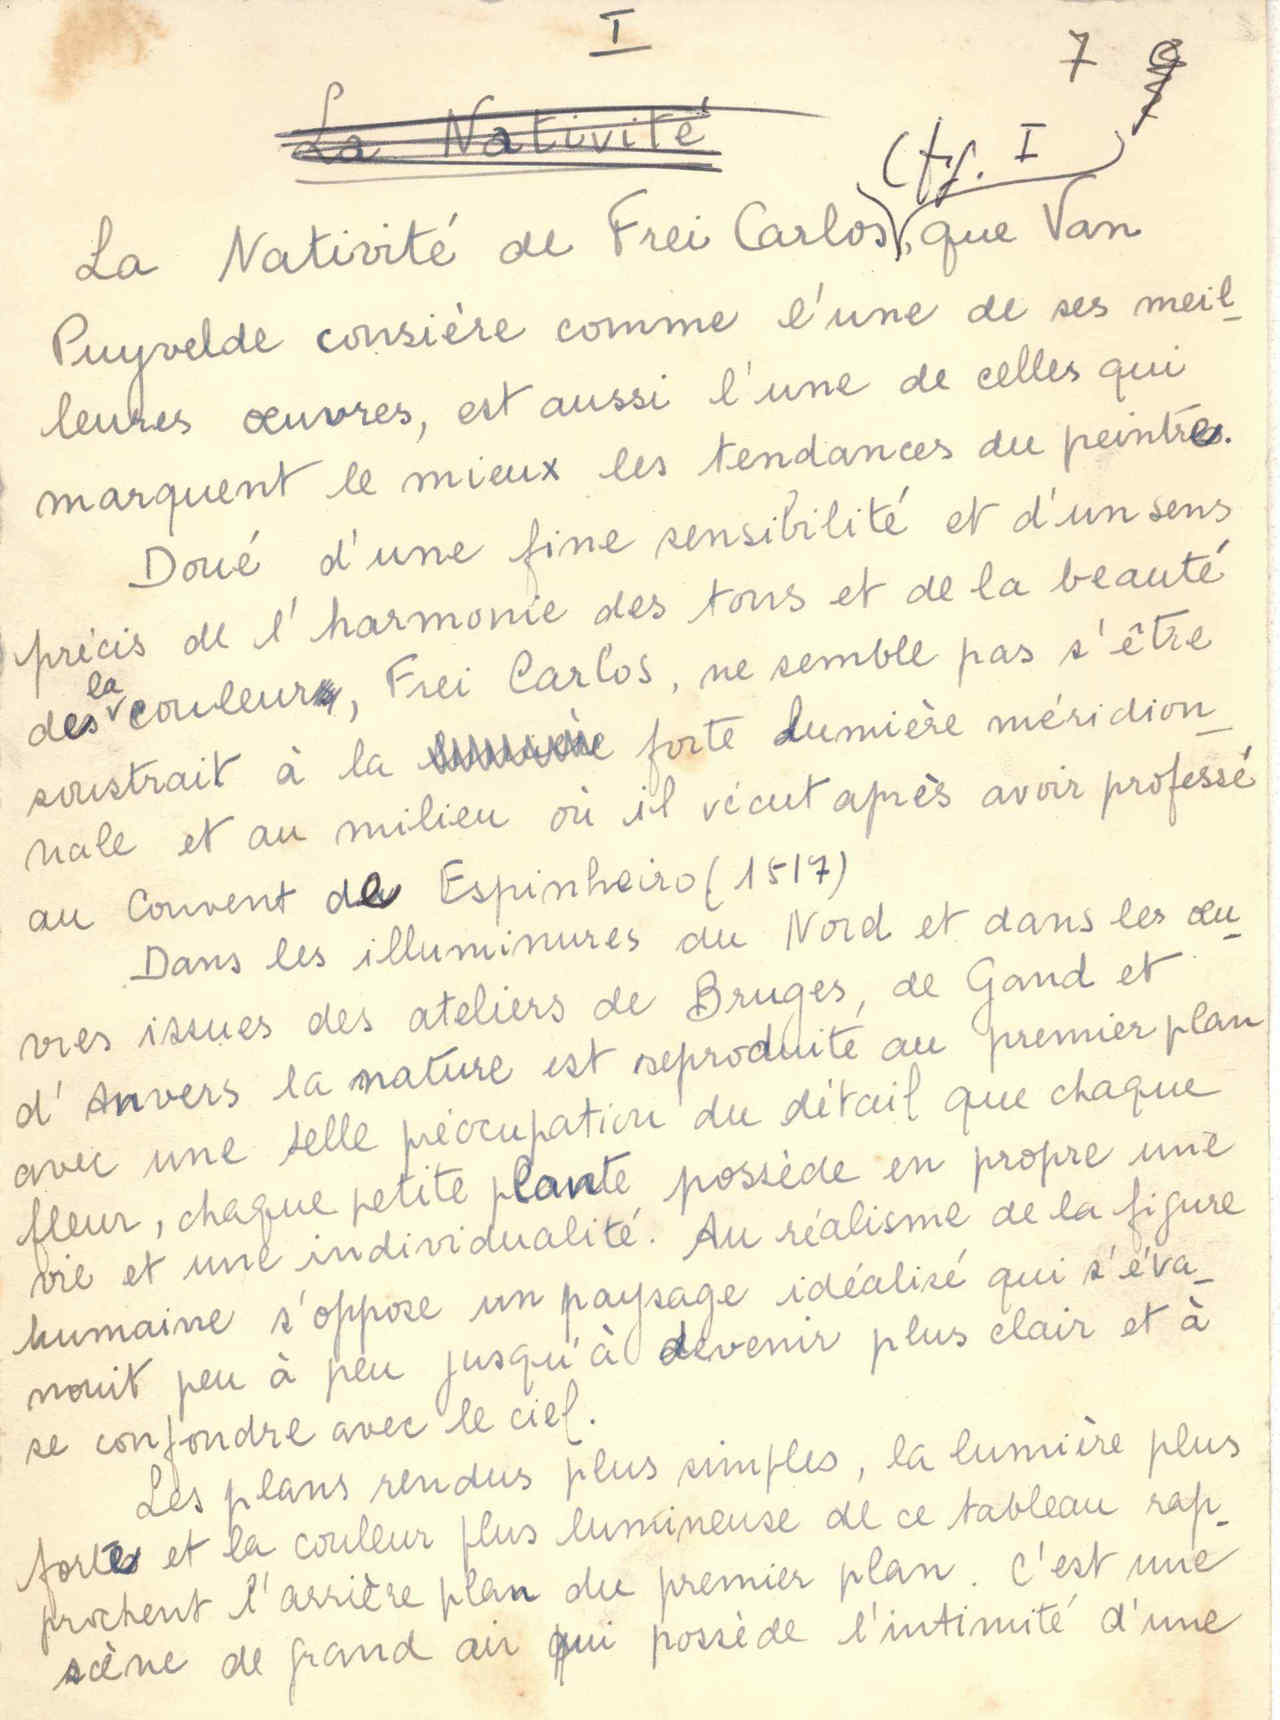 I
7
La Nativité
(fig. I)
La Nativité de Frei Carlos, que Van
Puyvelde consière comme l'une de ses meil-
leures œuvres, est aussi l'une de celles qui
marquent le mieux les tendances du peintre.
Doué d'une fine sensibilité et d'un sens
précis de l'harmonie des tons et de la beauté
des la couleur, Frei Carlos, ne semble pas s'être
soustrait à la lumière forte lumière méridion-
nale et au milieu où il vécut après avoir professé
au Couvent de Espinheiro (1517)
Dans les illuminures du Nord et dans les œu-
vres issues des ateliers de Bruges, de Gand et
d'Anvers la nature est reproduite au premier plan
avec une telle préocupation du détail que chaque
fleur, chaque petite plante possède en propre une
vie et une individualité. Au réalisme de la figure
humaine s'oppose un paysage idéalisé qui s'éva-
nouit peu à peu jusqu'à devenir plus clair et à
se confondre avec le ciel.
Les plans rendus plus simples, la lumière plus
forte et la couleur plus lumineuse de ce tableau rap-
prochent l'arrière plan du premier plan. C'est une
scène de grand air qui possède l'intimité d'une